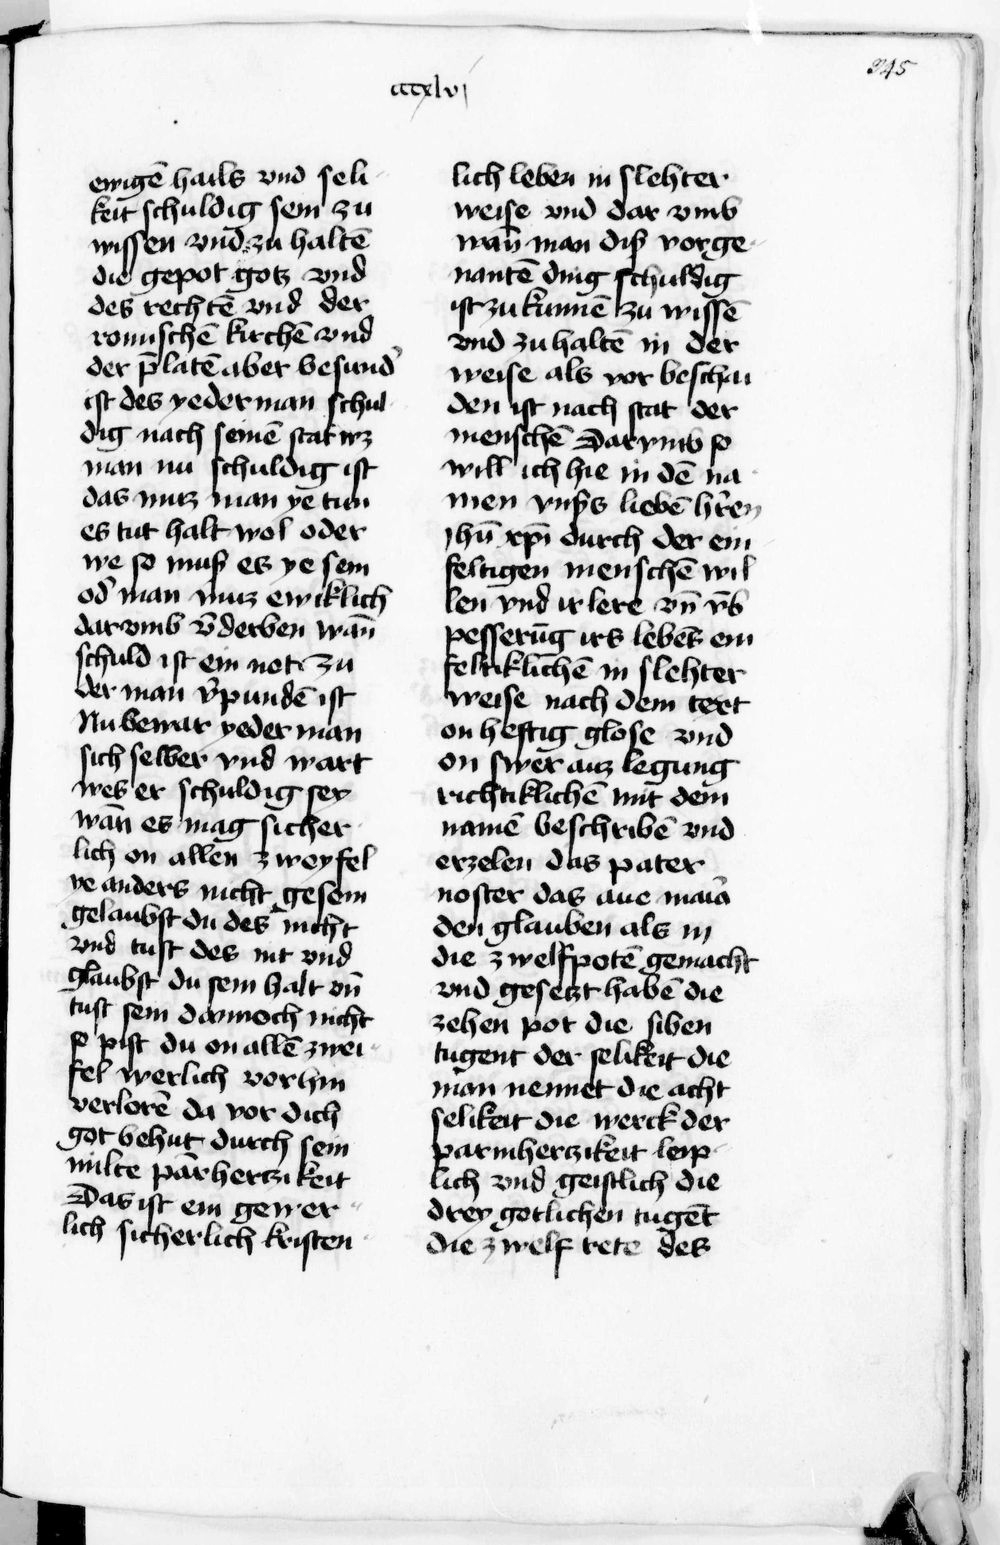 345
cccxlvj
ewigē hails vnd seli-
keit schuldig sein zu
wissen vnd zu haltē
die gepot gotz vnd
des rechtē vnd der
romischē kirchē vnd
der p̄latē aber besund'
ist des yederman schul-
dig nach seinē stat wz
man nu schuldig ist
das muz man ye tun
es tut halt wol oder
we so muß es ye sein
od' man muz ewiklich
dar vmb v̄derben wan̄
schuld ist ein not zu
der man v'pundē ist
Nu bewar yederman
sich selber vnd wart
wes er schuldig sey
wan̄ es mag sicher-
lich on allen zweyfel
ye anders nicht gesein
gelaubst du des nicht
vnd tust des nit vnd
glaubst du sein halt vn̄
tust sein dannoch nicht
so pist du on allē zwei-
fel werlich vorhin
verlorē da vor dich
got behut durch sein
milte parhertzikeit
Das ist ein gewer-
lich sicherlich kristen-
lich leben in slehter
weise vnd dar vmb
wan̄ man diß vorge-
nantē ding schuldig
ist zu kunnē zu wissē
vnd zu haltē in der
weise als vor beschai
den ist nach stat der
menschē Dar vmb so
will ich hie in dē na-
men vnßs liebē hr̄en
jhū xp̄i durch der ein
feltigen menschē wil
len vnd ir lere vn̄ v̄b
pesserūg irs lebēs ein
feltiklichē in slehter
weise nach dem text
on heftig glose vnd
on swer auz legung
richtiklichē mit dem
namē beschribē vnd
erzelen das pater
noster das aue mar̄a
den glauben als in
die zwelfpotē gemacht
vnd gesetzt habē die
zehen pot die siben
tugent der selikeit die
man nennet die acht
selikeit die werck der
parmhertzikeit leip-
lich vnd geistlich die
drey gotlichen tugēt
die zwelf rete des